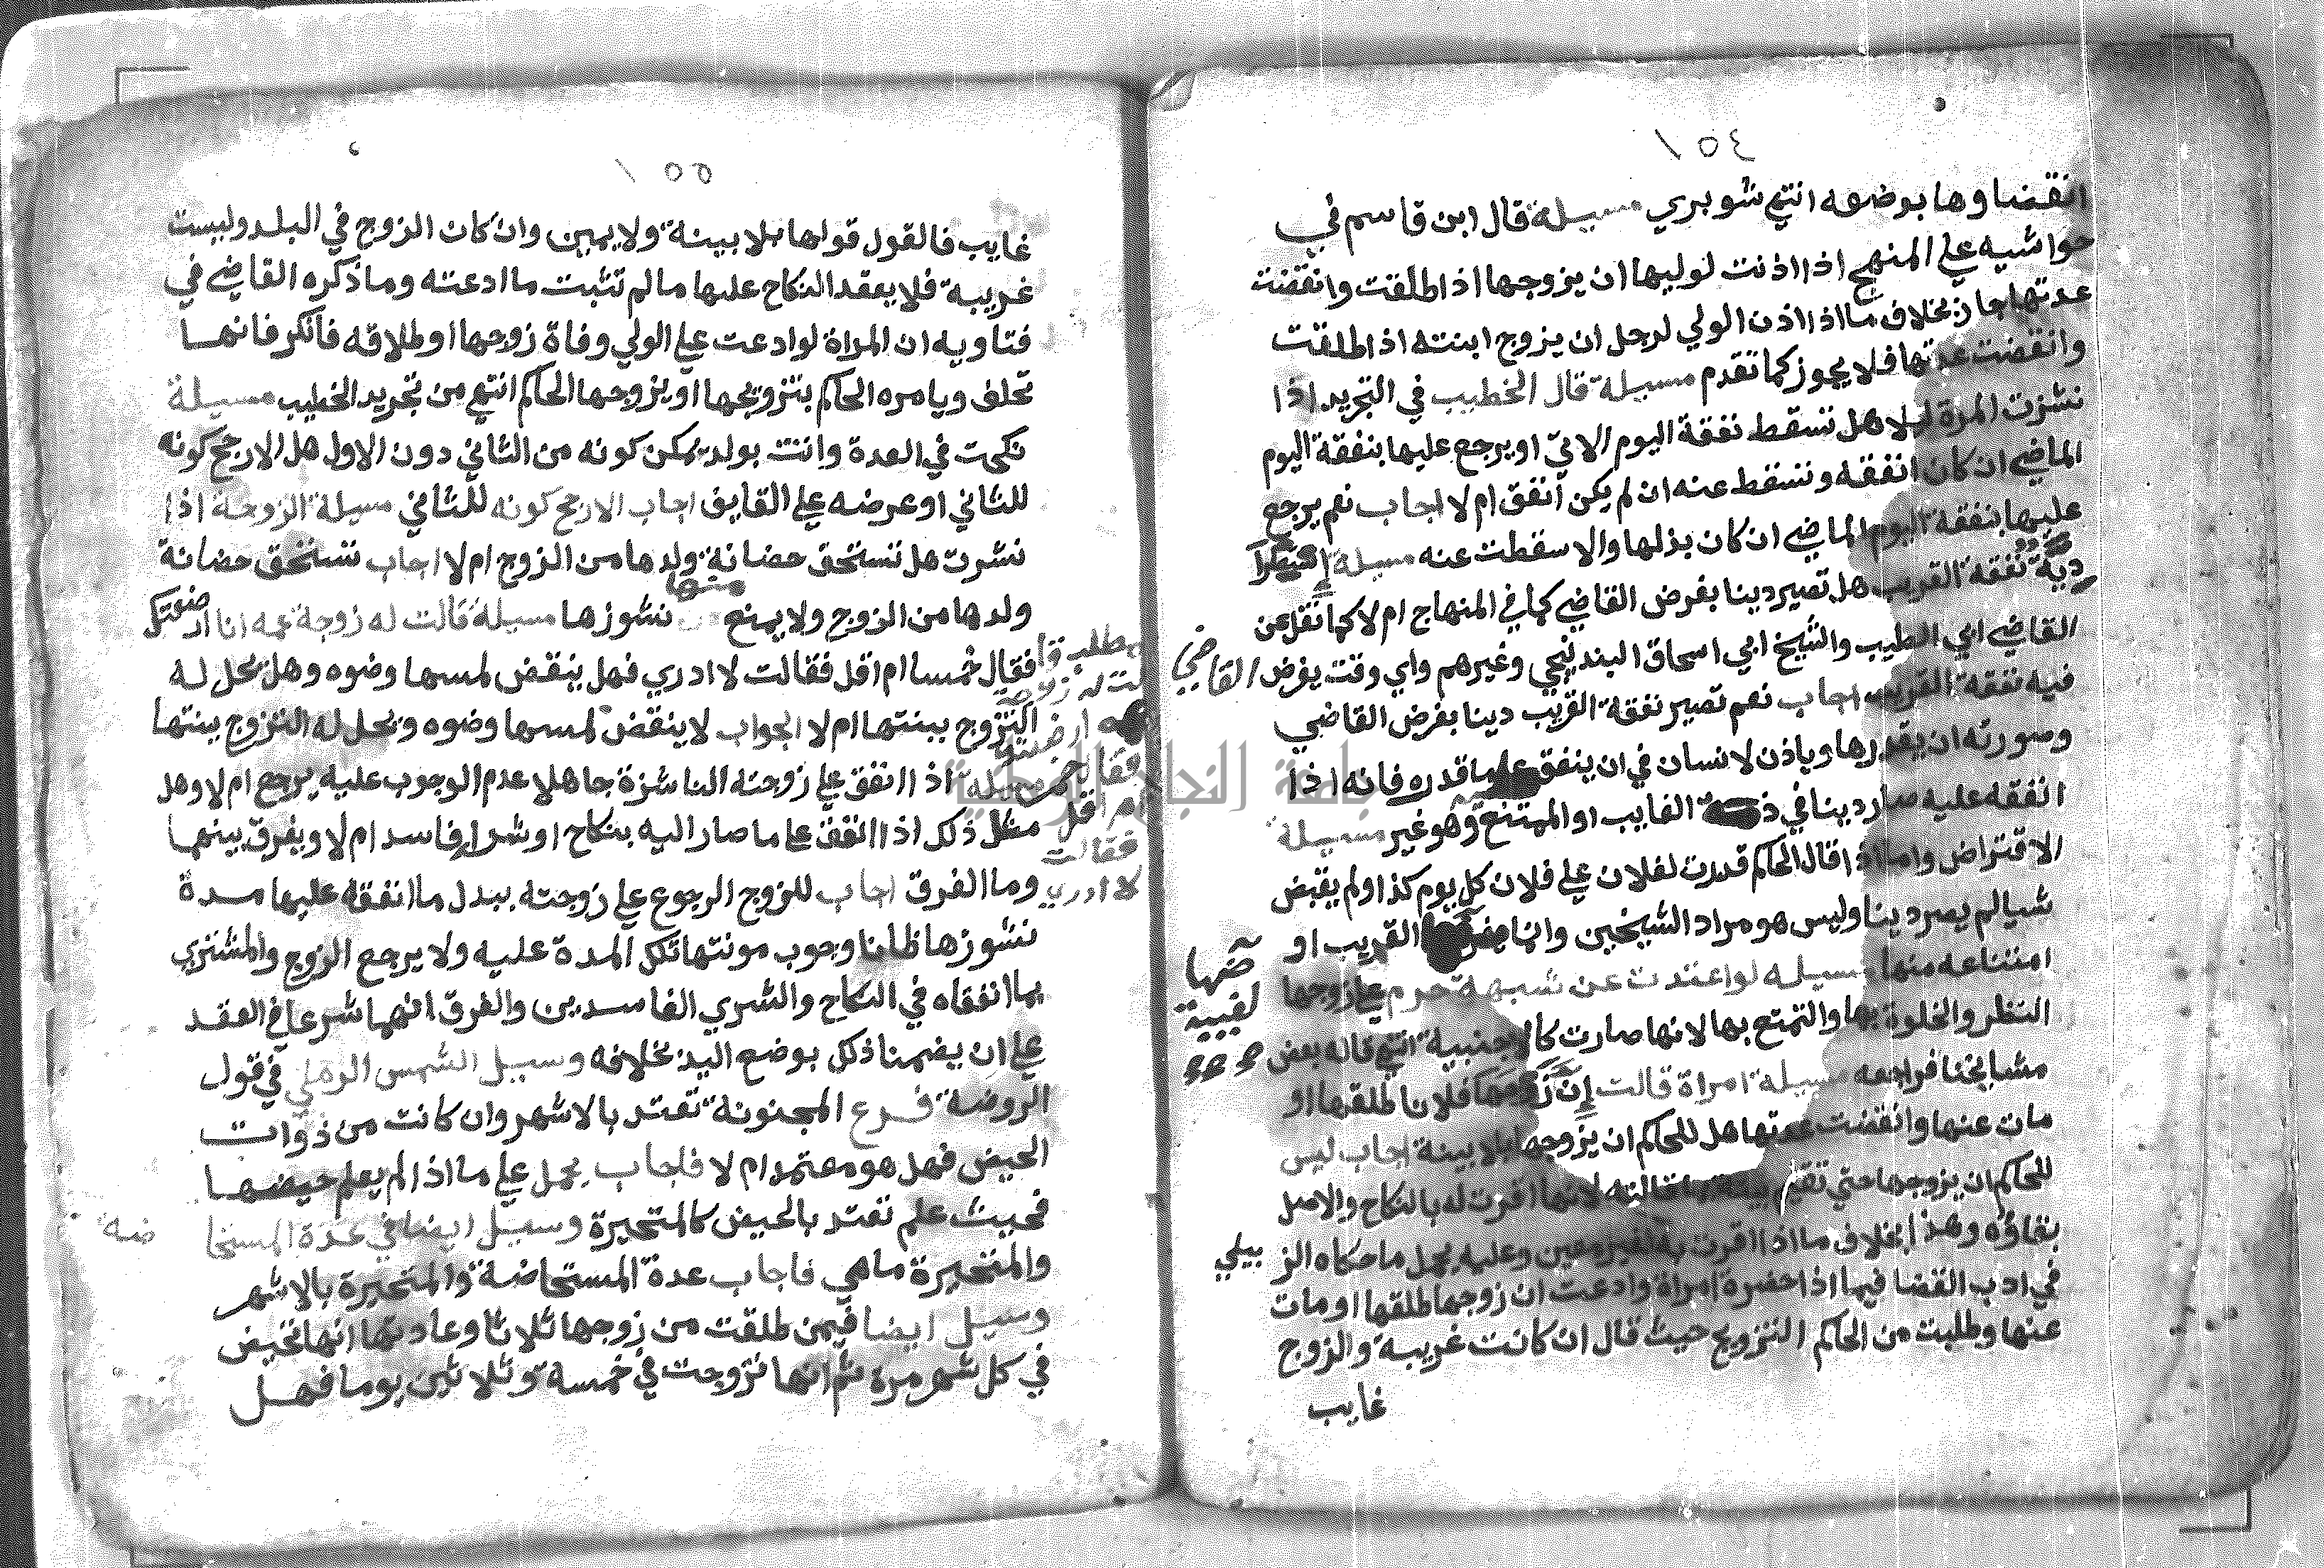 ١٥٤
انقضاوها بوضعه انتهي شوبري مسيلة قال ابن قاسم في
حواشيه علي المنهج اذا اذنت لوليها ان يزوجها اذا طلقت وانقضت
عدتها جاز بخلاف ما اذا اذن الولي لرجل ان يزوج ابنته اذا طلقت
وانقضت عدتها فلا يجوز كما تقدم مسيلة قال الخطيب في التجريد اذا
نشزت المرة ليلا هل تسقط نفقة اليوم الاتي او يرجع عليها بنفقة اليوم
الماضي ان كان انفقه وتسقط عنه ان لم يكن انفق ام لا اجاب نعم يرجع
عليها بنفقة اليوم الماضي ان كان بذلها والا سقطت عنه مسيلة
نفقة القريب هل تصير دينا بفرض القاضي كما في المنهاج ام لا كما نقل عن
القاضي ابي الطيب والشيخ ابي اسحاق البندنيجي وغيرهم واي وقت يفرض القاضي
فيه نفقة القريب اجاب نعم تصير نفقة القريب دينا بفرض القاضي
وصورته ان يقدرها وياذن لانسان في ان ينفق عليه ما قدره فانه اذا
انفقه عليه صار دينا في ذمة الغايب او الممتنع وهو غير مسيلة
الاقتراض واما اذا قال الحاكم قدرت لفلان علي فلان كل يوم كذا ولم يقبض
شيا لم يصر دينا وليس هو مراد الشيخين وانما القريب او
ضها
لغيبة
امتناعه منها مسيله لو اعتدت عن شبهة حرم علي زوجها
النظر والخلوة بها والتمتع بها لانها صارت كالاجنبية انتهي قاله بعض
مشايخنا فراجعه مسيلة امراة قالت ان زوجها فلانا طلقها او
مات عنها وانقضت عدتها هل للحاكم ان يزوجها بلا بينة اجاب ليس
للحاكم ان يزوجها حتي تقيم بينة بما قالته لانها اقرت له بالنكاح والاصل
بقاؤه وهذا بخلاف ما اذا اقرت به لغير معين وعليه يحمل ما حكاه الزبيلي
في ادب القضا فيما اذا حضرة امراة وادعت ان زوجها طلقها او مات
عنها وطلبت من الحاكم التزويج حيث قال ان كانت غريبة والزوج
غايب
١٥٥
غايب فالقول قولها بلا بينة ولا يمين وان كان الزوج في البلد وليست
غريبة فلا يعقد النكاح عليها ما لم تثبت ما ادعته وما ذكره القاضي في
فتاويه ان المراة لو ادعت علي الولي وفاة زوجها او طلاقه فانكر فانها
تحلف ويامره الحاكم بتزويجها او يزوجها الحاكم انتهي من تجريد الخطيب مسيلة
نكحت في العدة واتت بولد يمكن كونه من الثاني دون الاول هل الارجح كونه
للثاني او عرضه علي القايف اجاب الارجح كونه للثاني مسيلة الزوجة اذا
نشزت هل تستحق حضانة ولدها من الزوج ام لا اجاب تستحق حضانة
ولدها من الزوج ولا يمنع منها نشوزها مسيلة قالت له زوجة عمه انا ارضعتك
فقال خمسا ام اقل فقالت لا ادري فهل ينقض لمسها وضوه وهل يحل له
التزوج ببنتها ام لا الجواب لا ينقض لمسها وضوه ويحل له التزوج ببنتها
مسيله اذا انفق علي زوجته الناشزة جاهلا عدم الوجوب عليه يرجع ام لا وهل
مثل ذلك اذا انفق علي ما صار اليه بنكاح او شراء فاسد ام لا ويفرق بينهما
وما الفرق اجاب للزوج الرجوع علي زوجته ببدل ما انفقه عليها مدة
نشوزها ظانا وجوب مونتها تلك المدة عليه ولا يرجع الزوج والمشتري
بما انفقاه في النكاح والشري الفاسدين والفرق انهما شرعا في العقد
علي ان يضمنا ذلك بوضع اليد بخلافه وسييل الشمس الرملي في قول
الروضة فرع المجنونة تعتد بالاشهر وان كانت من ذوات
الحيض فهل هو معتمد ام لا فاجاب يحمل علي ما اذا لم يعلم حيضها
فحيث علم تعتد بالحيض كالمتحيرة وسييل ايضا في عدة المستحاضه
والمتحيرة ما هي فاجاب عدة المستحاضة والمتحيرة بالاشهر
وسييل ايضا فيمن طلقت من زوجها ثلاثا وعادتها انها تحيض
في كل شهر مرة ثم انها تزوجت في خمسة وثلاثين يوما فهل
مطلب قا
لت له زوجة
عمه ارضعتك
فقال خمس
ام اقل
فقالت
لا ادري
جامعة النجاح الوطنية